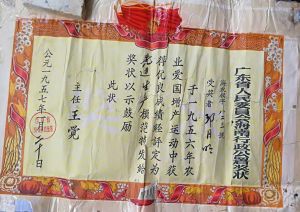 广东省人民委员会海南行政公署奖状
受奖者
于一九五六年农
业爱国增产运动中获
得优良成绩经评定为
先进生产模范特发给
奖状以示鼓励
此状
主任 王
公元一九五七年